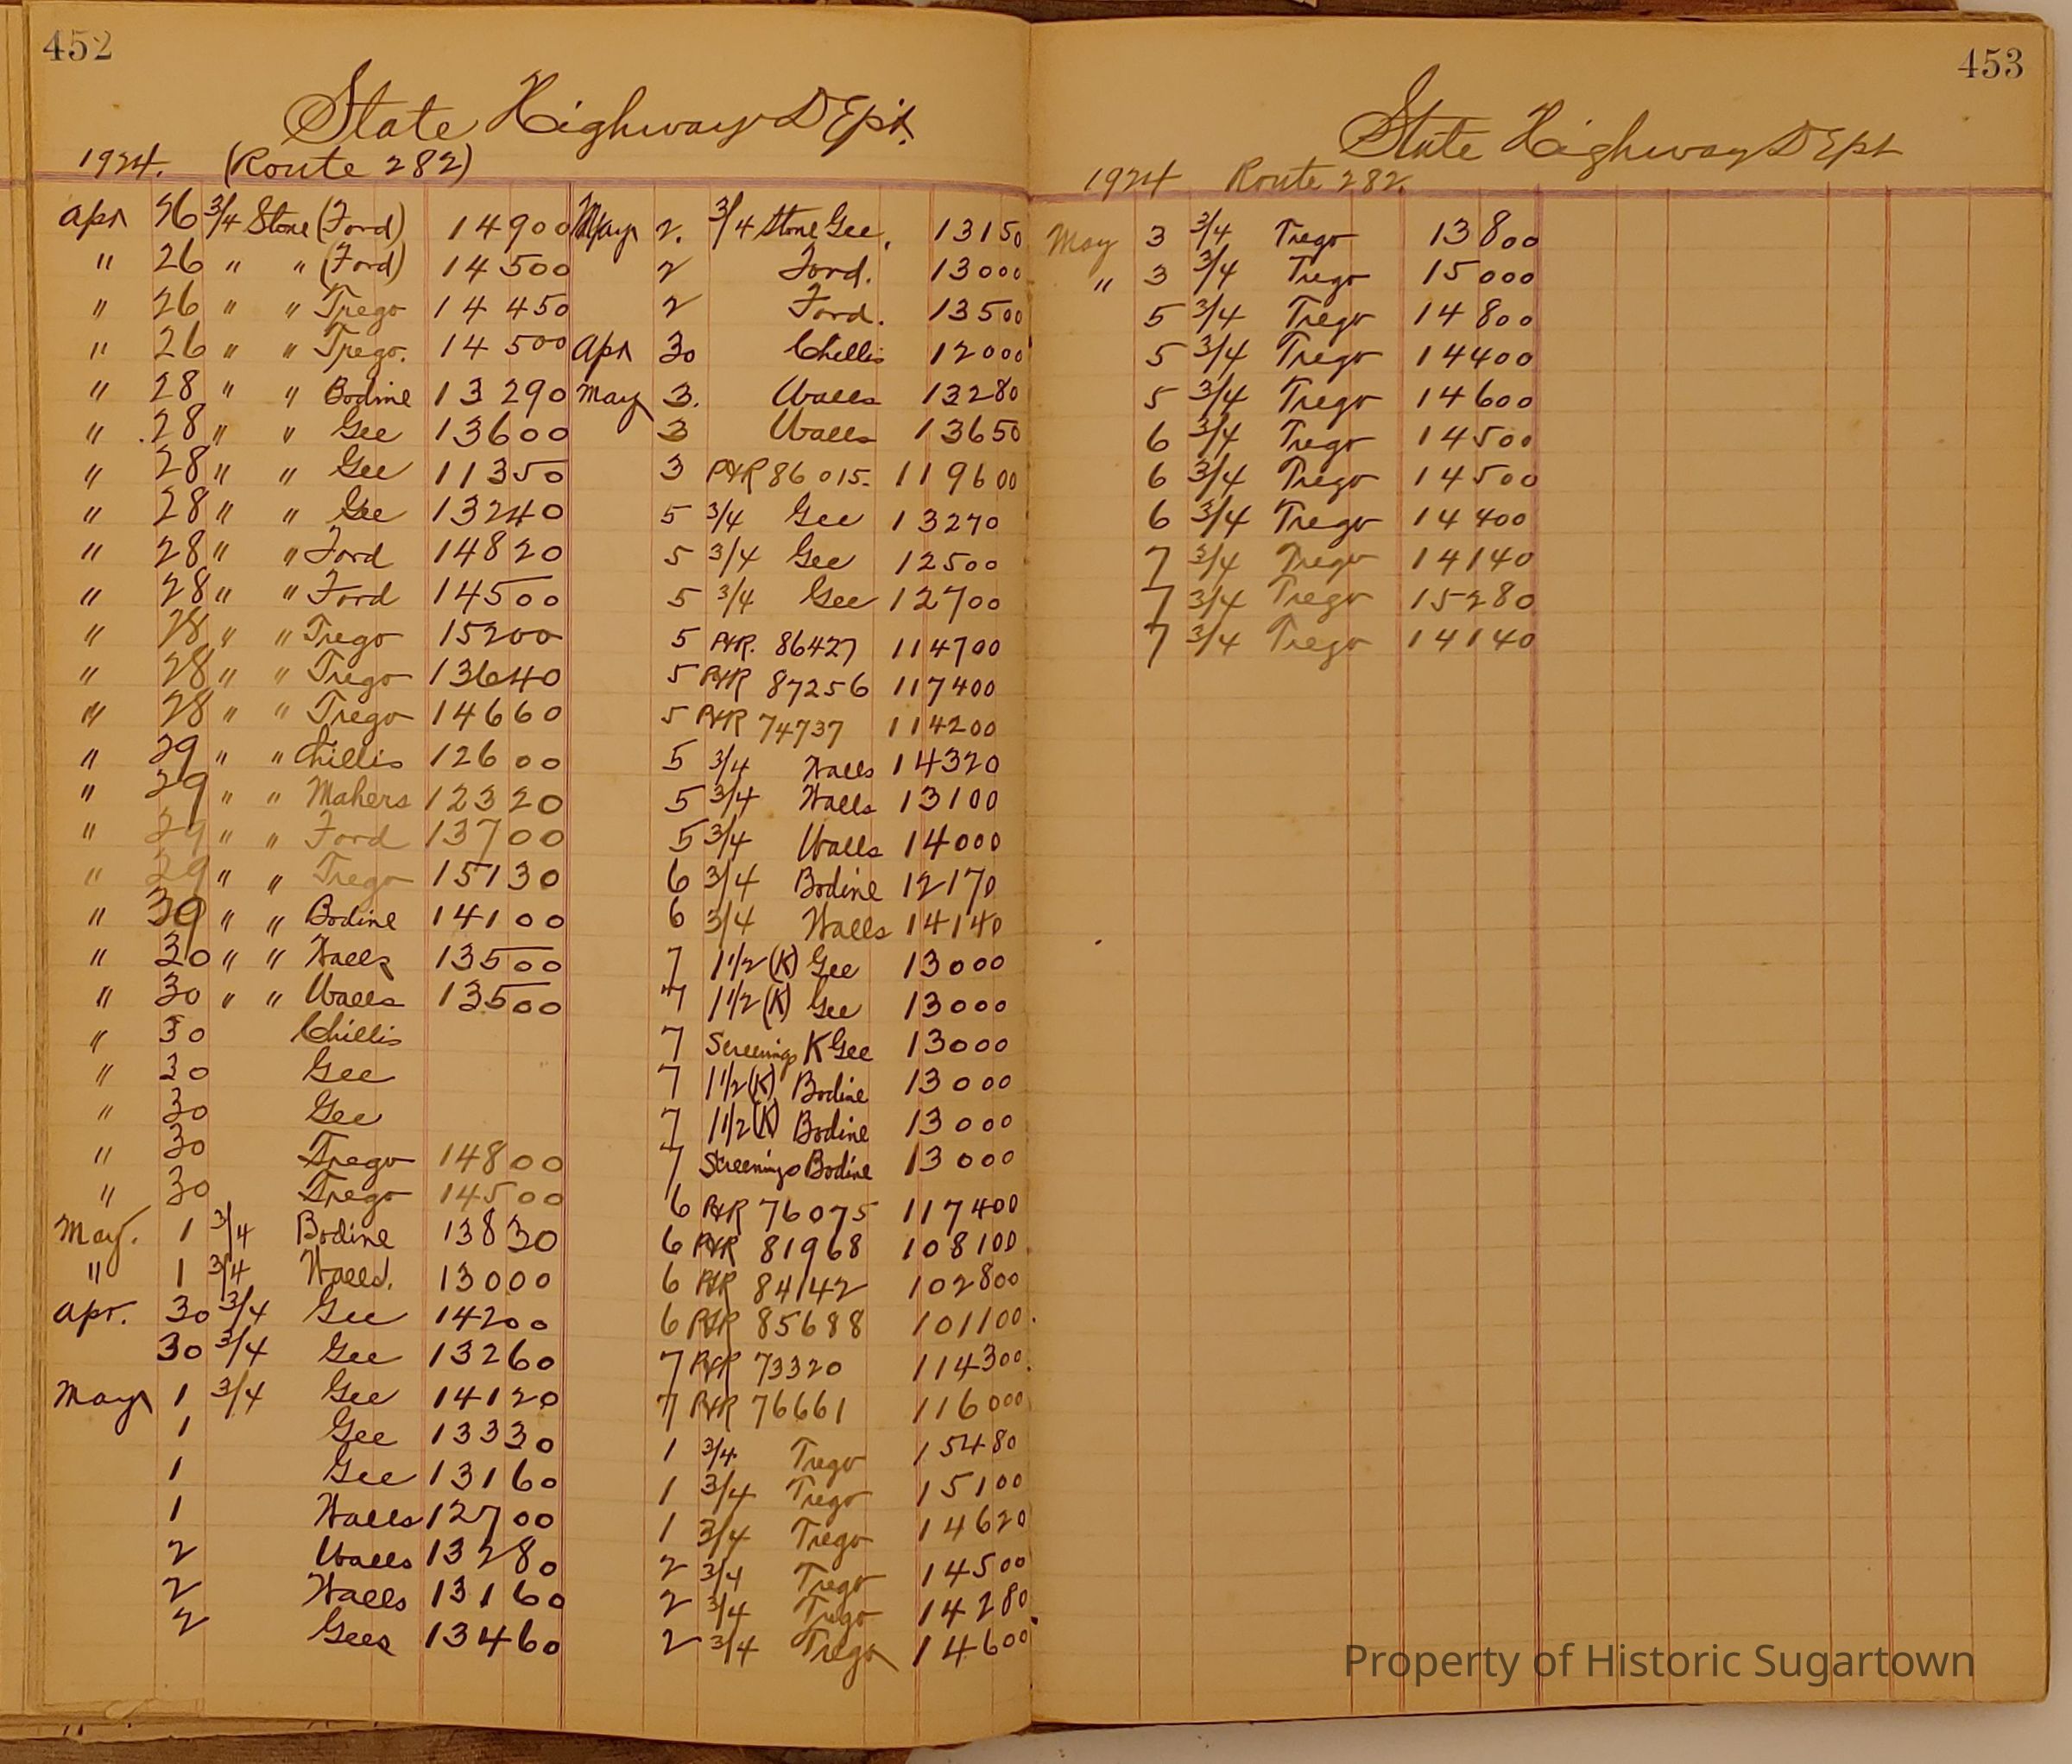 452
State Highway DEpt.
1924. (Route 282)
Apr 26 3/4 Stone (Ford) 14900
" 26 " " (Ford) 14500
" 26 " " Trego 14450
" 26 " " Trego. 14500
" 28 " " Bodine 13290
" 28 " " Gee 13600
" 28 " " Gee 11350
" 28 " " Gee 13240
" 28 " " Ford 14820
" 28 " " Ford 14500
" 28 " " Trego 15200
" 28 " " Trego 13640
" 28 " " Trego 14660
" 29 " " Chillis 12600
" 29 " " Mahers 12320
" 29 " " Ford 13700
" 29 " " Trego 15130
" 30 " " Bodine 14100
" 30 " " Walls 13500
" 30 " " Walls 13500
" 30 Chillis
" 30 Gee
" 30 Gee
" 30 Trego 14800
" 30 Trego 14500
May. 1 3/4 Bodine 13830
" 1 3/4 Walls. 13000
Apr. 30 3/4 Gee 14200
30 3/4 Gee 13260
May 1 3/4 Gee 14120
1 Gee 13330
1 Gee 13160
1 Walls 12700
2 Walls 13280
2 Walls 13160
2 Gees 13460
May 2. 3/4 Stone Gee. 13150
2 Ford. 13000
2 Ford. 13500
Apr 30 Chillis 12000
May 3. Walls 13280
3 Walls 13650
3 P&R 86015. 119600
5 3/4 Gee 13270
5 3/4 Gee 12500
5 3/4 Gee 12700
5 P&R. 86427 114700
5 P&R 87256 117400
5 P&R 74737 114200
5 3/4 Walls 14320
5 3/4 Walls 13100
5 3/4 Walls 14000
6 3/4 Bodine 12170
6 3/4 Walls 14140
7 1 1/2 (K) Gee 13000
7 1 1/2 (K) Gee 13000
7 Screenings K Gee 13000
7 1 1/2 (K) Bodine 13000
7 1 1/2 (K) Bodine 13000
7 Screenings Bodine 13000
6 P&R 76075 117400
6 P&R 81968 108100
6 P&R 84142 102800
6 P&R 85688 101100.
7 P&R 73320 114300.
7 P&R 76661 116000
1 3/4 Trego 15480
1 3/4 Trego 15100
1 3/4 Trego 14620
2 3/4 Trego 14500
2 3/4 Trego 14280
2 3/4 Trego 14600
453
State Highway DEpt
1924 Route 282.
May 3 3/4 Trego 13800
" 3 3/4 Trego 15000
5 3/4 Trego 14800
5 3/4 Trego 14400
5 3/4 Trego 14600
6 3/4 Trego 14500
6 3/4 Trego 14500
6 3/4 Trego 14400
7 3/4 Trego 14140
7 3/4 Trego 15280
7 3/4 Trego 14140
Property of Historic Sugartown